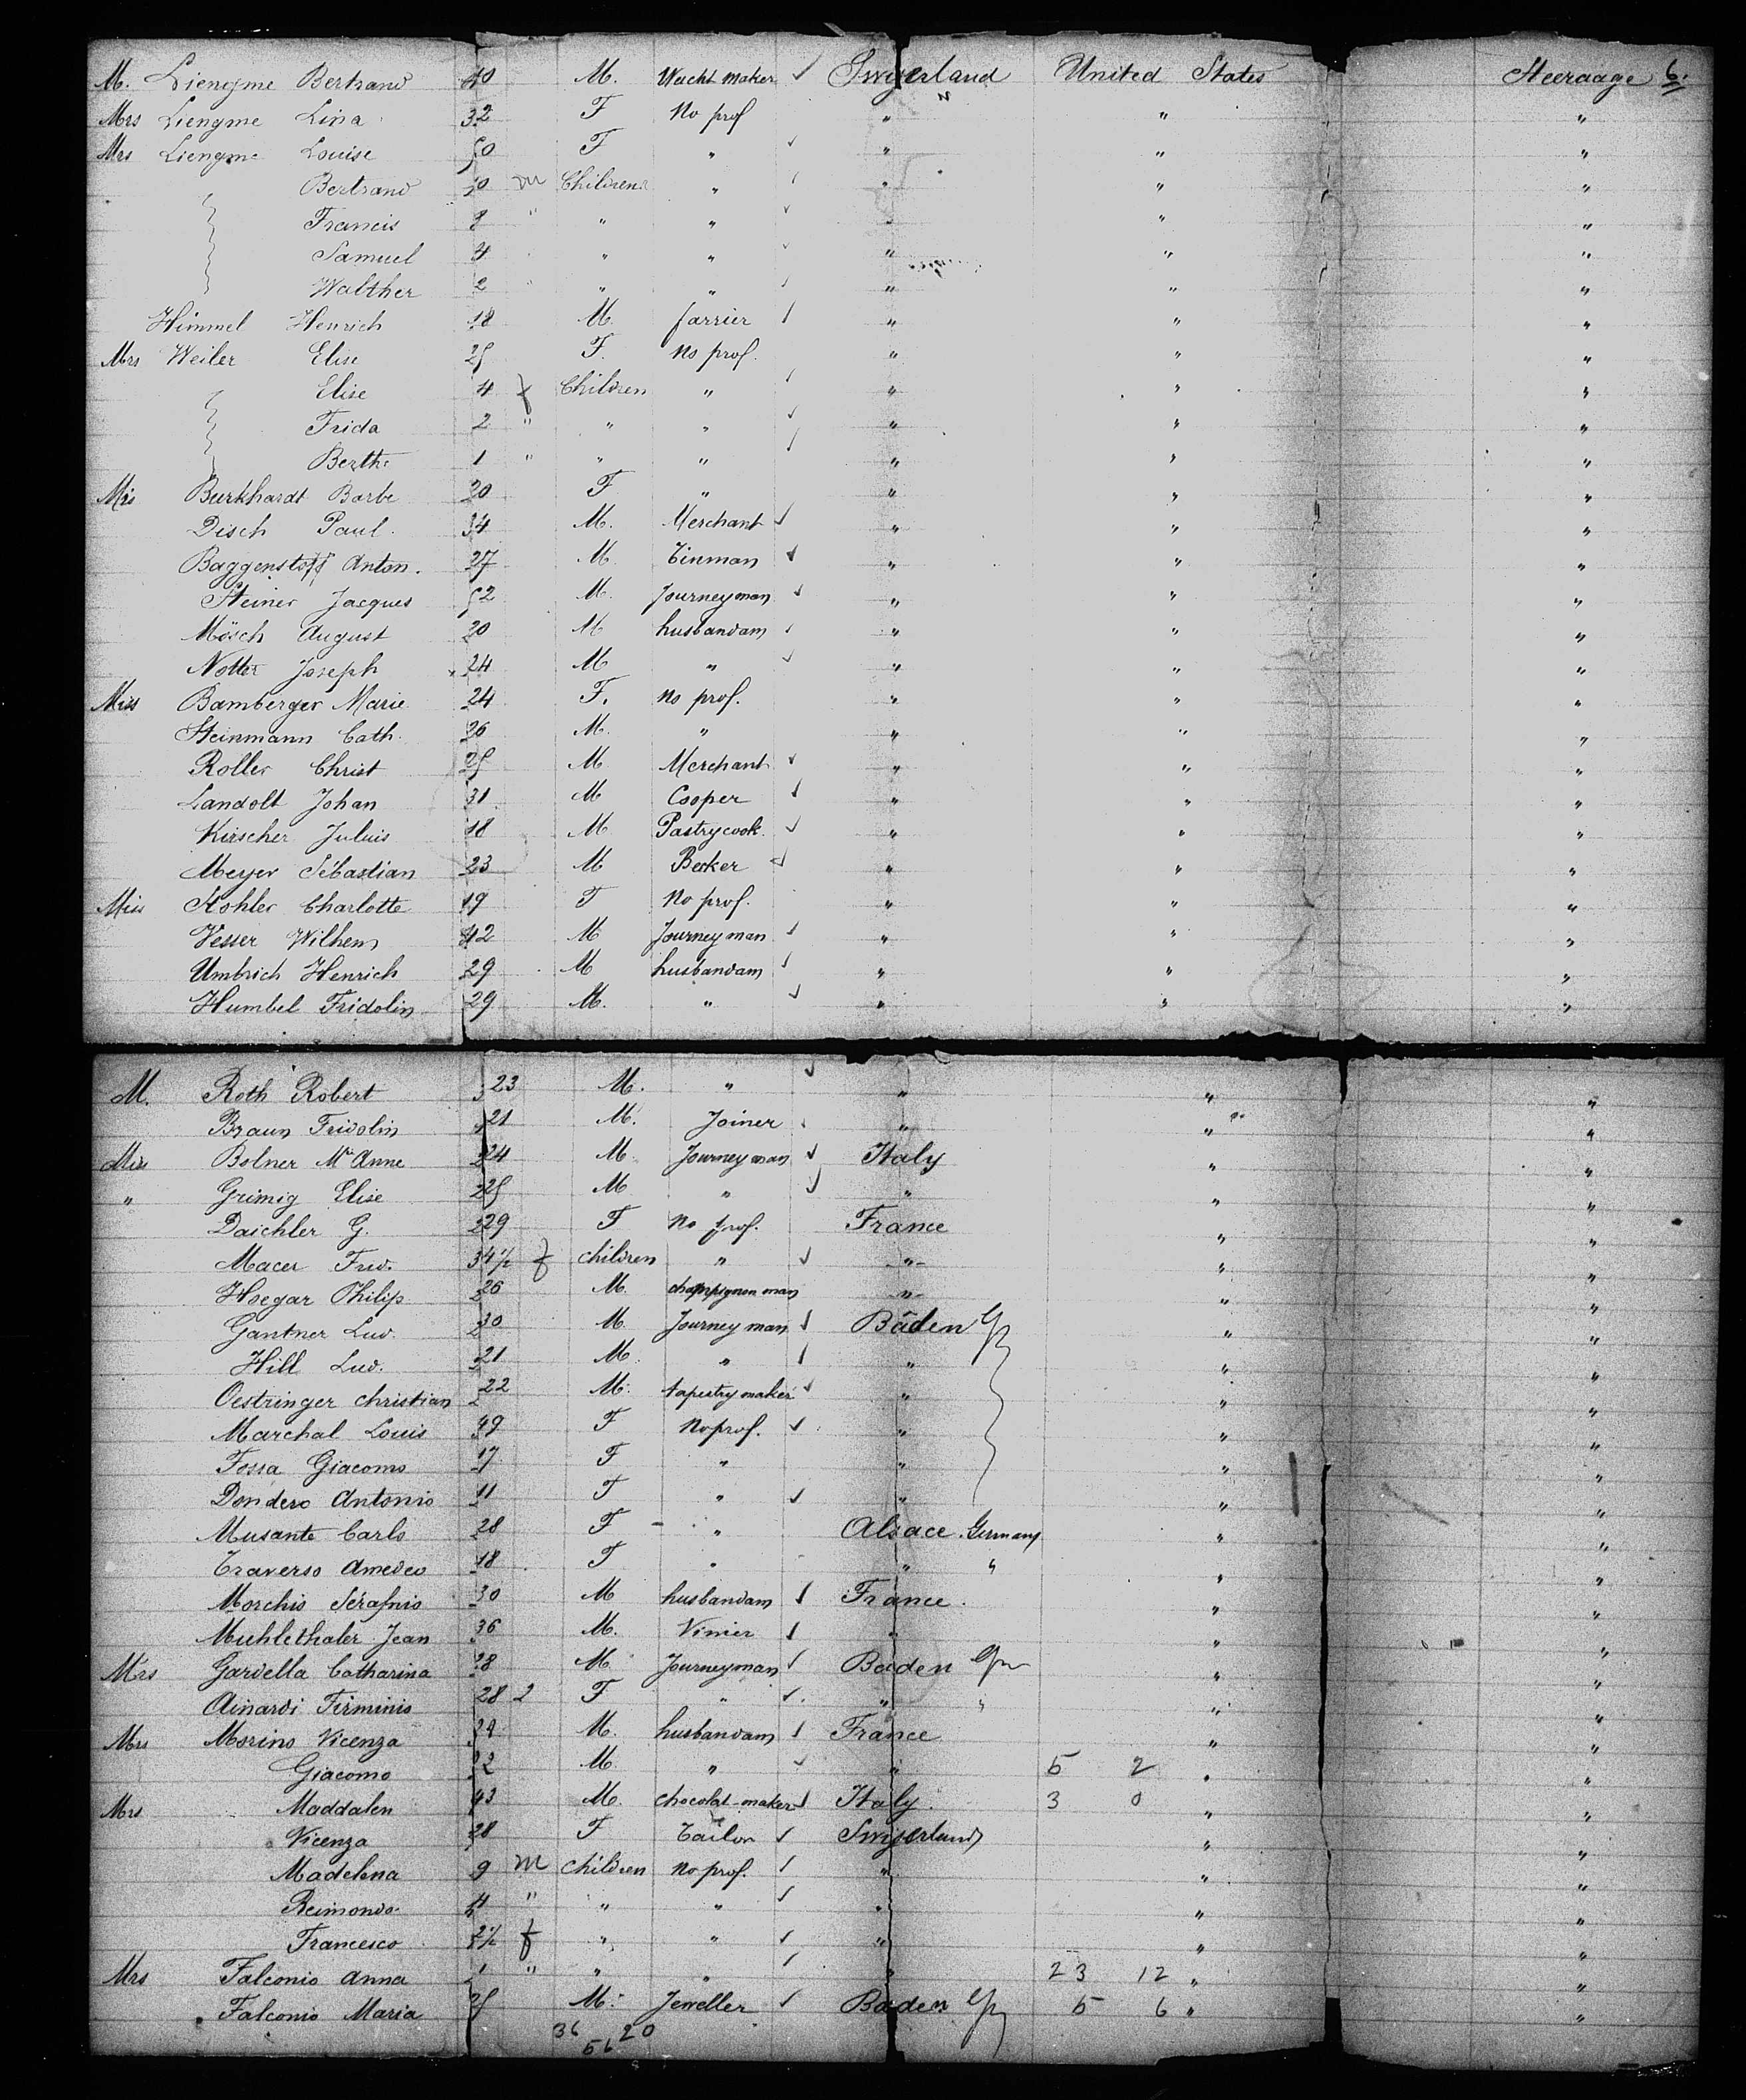 M. Liengme Bertrand 40 M. Wacht maker ✓ Swyerland United States Steeraage 6.
Mrs Liengme Lina 32 F No prof " " "
Mrs Liengme Louise 50 F " ✓ " " "
Bertrand 10 m Children " ✓ " " "
Francis 8 " " " ✓ " " "
Samuel 4 " " " ✓ " " "
Walther 2 " " " ✓ " " "
Himmel Henrich 18 M. farrier ✓ " " "
Mrs Weiler Elise 25 F. No prof. " " "
Elise 4 f Children " ✓ " " "
Frida 2 " " " ✓ " " "
Berthe 1 " " " ✓ " " "
Mis Burkhardt Barbe 20 F " " " "
Disch Paul. 34 M. Merchant ✓ " " "
Baggenstoff Anton. 27 M. Tinman ✓ " " "
Steiner Jacques 52 M. Journeyman ✓ " " "
Mösch August 20 M husbandam ✓ " " "
Notter Joseph 24 M " ✓ " " "
Miss Bamberger Marie 24 F. No prof. " " "
Steinmann Cath. 26 M. " " " "
Roller Christ 25 M Merchant ✓ " " "
Landolt Johan 31 M Cooper ✓ " " "
Kirscher Juluis 18 M Pastrycook ✓ " " "
Meyer Sébastian 23 M Beeker ✓ " " "
Miss Kohler Charlotte 19 F No prof. " " "
Vesser Wilhem 42 M Journeyman ✓ " " "
Umbrich Henrich 29 M husbandam ✓ " " "
Humbel Fridolin 29 M. " ✓ " " "
M. Roth Robert 23 M. " ✓ " " "
Braun Fridolin 21 M. Joiner ✓ " " "
Miss Bolner Mr Anne 24 M. Journeyman ✓ Italy " "
" Grimig Elise 25 M " ✓ " " "
Daichler G. 29 F No prof. France " "
Macer Frid. 34 1/2 f children " ✓ " " "
Hoegar Philip 26 M. champignon man " " "
Gantner Lud. 30 M. Journeyman ✓ Baden Gr " "
Hill Lud. 21 M. " ✓ " " "
Oestringer christian 22 M. tapestry maker ✓ " " "
Marchal Louis 49 F No prof. ✓ " " "
Fossa Giacomo 17 F " " " "
Dondero Antonio 11 F " ✓ " " "
Musante Carlo 28 F " Alsace. Germany " "
Traverso Amedeo 18 F " " " " "
Morchio Sérafnio 30 M husbandam ✓ France. " "
Muhlethaler Jean 36 M. Vinier ✓ " " "
Mrs Gardella Catharina 28 M Journeyman ✓ Baden Gr " "
Ainardi Firminio 28 2 F " ✓ " " " "
Mrs Morino Vicenza 24 M. husbandam ✓ France " "
Giacomo 22 M. " ✓ " 5 2 " "
Mrs Maddalen 43 M. chocolat-maker ✓ Italy. 3 0 " "
Vicenza 28 F Tailor ✓ Swizerland " "
Madelena 9 m children No prof. ✓ " " "
Reimondo 4 " " " ✓ " " "
Francesco 2 1/2 f " " ✓ " " "
Mrs Falconio Anna 1 " " " ✓ " 23 12 " "
Falconio Maria 25 M. Jeweller ✓ Baden Gr 5 6 " "
36 20
56